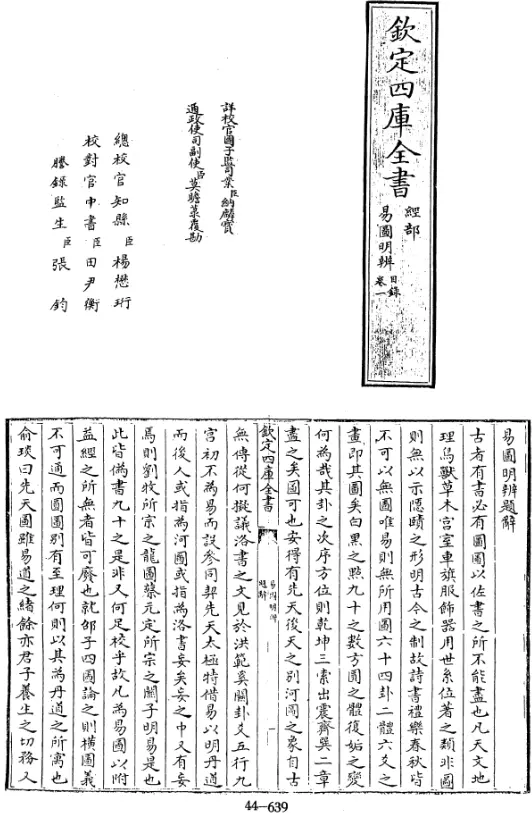 欽定四庫全書
經部
易圖明辨
目錄
卷一
詳校官國子監司業臣納麟寶
通政使司副使臣莫瞻菉覆勘
總校官知縣臣楊懋珩
校對官中書臣田尹衡
謄錄監生臣張鈞
易圖明辨題辭
古者有書必有圖圖以佐書之所不能盡也凡天文地
理鳥獸草木宮室車旗服飾器用世系位著之類非圖
則無以示隠賾之形明古今之制故詩書禮樂春秋皆
不可以無圖唯易則無所用圖六十四卦二體六爻之
畫即其圖矣白黑之㸃九十之數方圓之體復姤之變
何為哉其卦之次序方位則乾坤三索出震齊巽二章
盡之矣圖可也安得有先天後天之別河圖之象自古
欽定四庫全書
易圖明辨
題辭
一
無傳從何擬議洛書之文見於洪範奚關卦爻五行九
宮初不為易而設參同契先天太極特借易以明丹道
而後人或指為河圖或指為洛書妄矣妄之中又有妄
焉則劉牧所宗之龍圖蔡元定所宗之關子明易是也
此皆偽書九十之是非又何足校乎故凡為易圖以附
益經之所無者皆可廢也就邵子四圖論之則横圖義
不可通而圓圖別有至理何則以其為丹道之所寓也
俞琰曰先天圖雖易道之緒餘亦君子養生之切務又
44-639